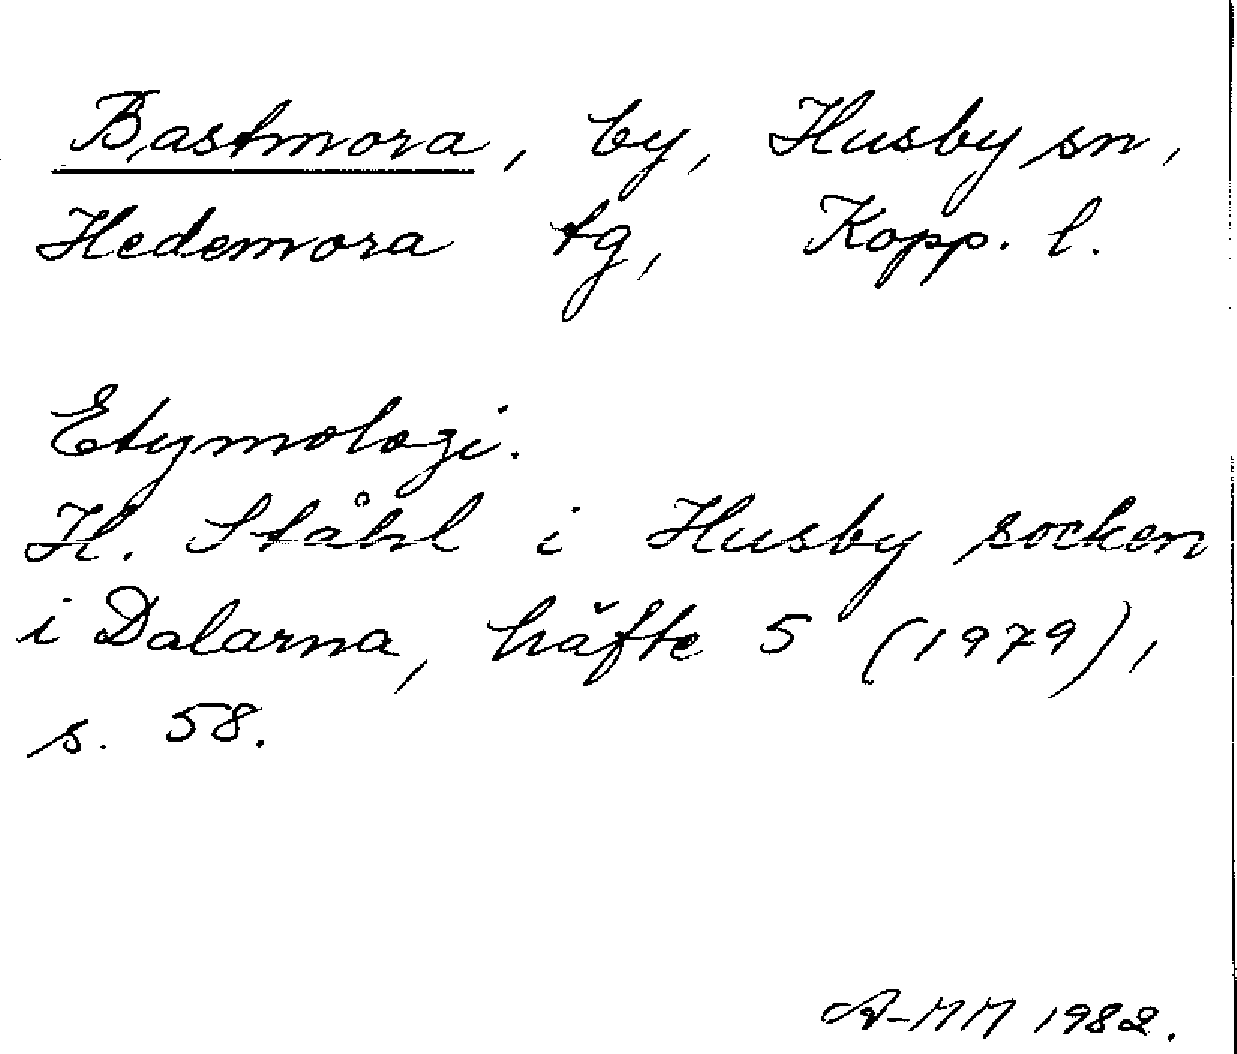 Bastmora, by, Husby sn,
Hedemora tg, Kopp. l.
Etymologi.
H. Ståhl i Husby socken
i Dalarna, häfte 5 (1979),
s. 58.
A-MM 1982.